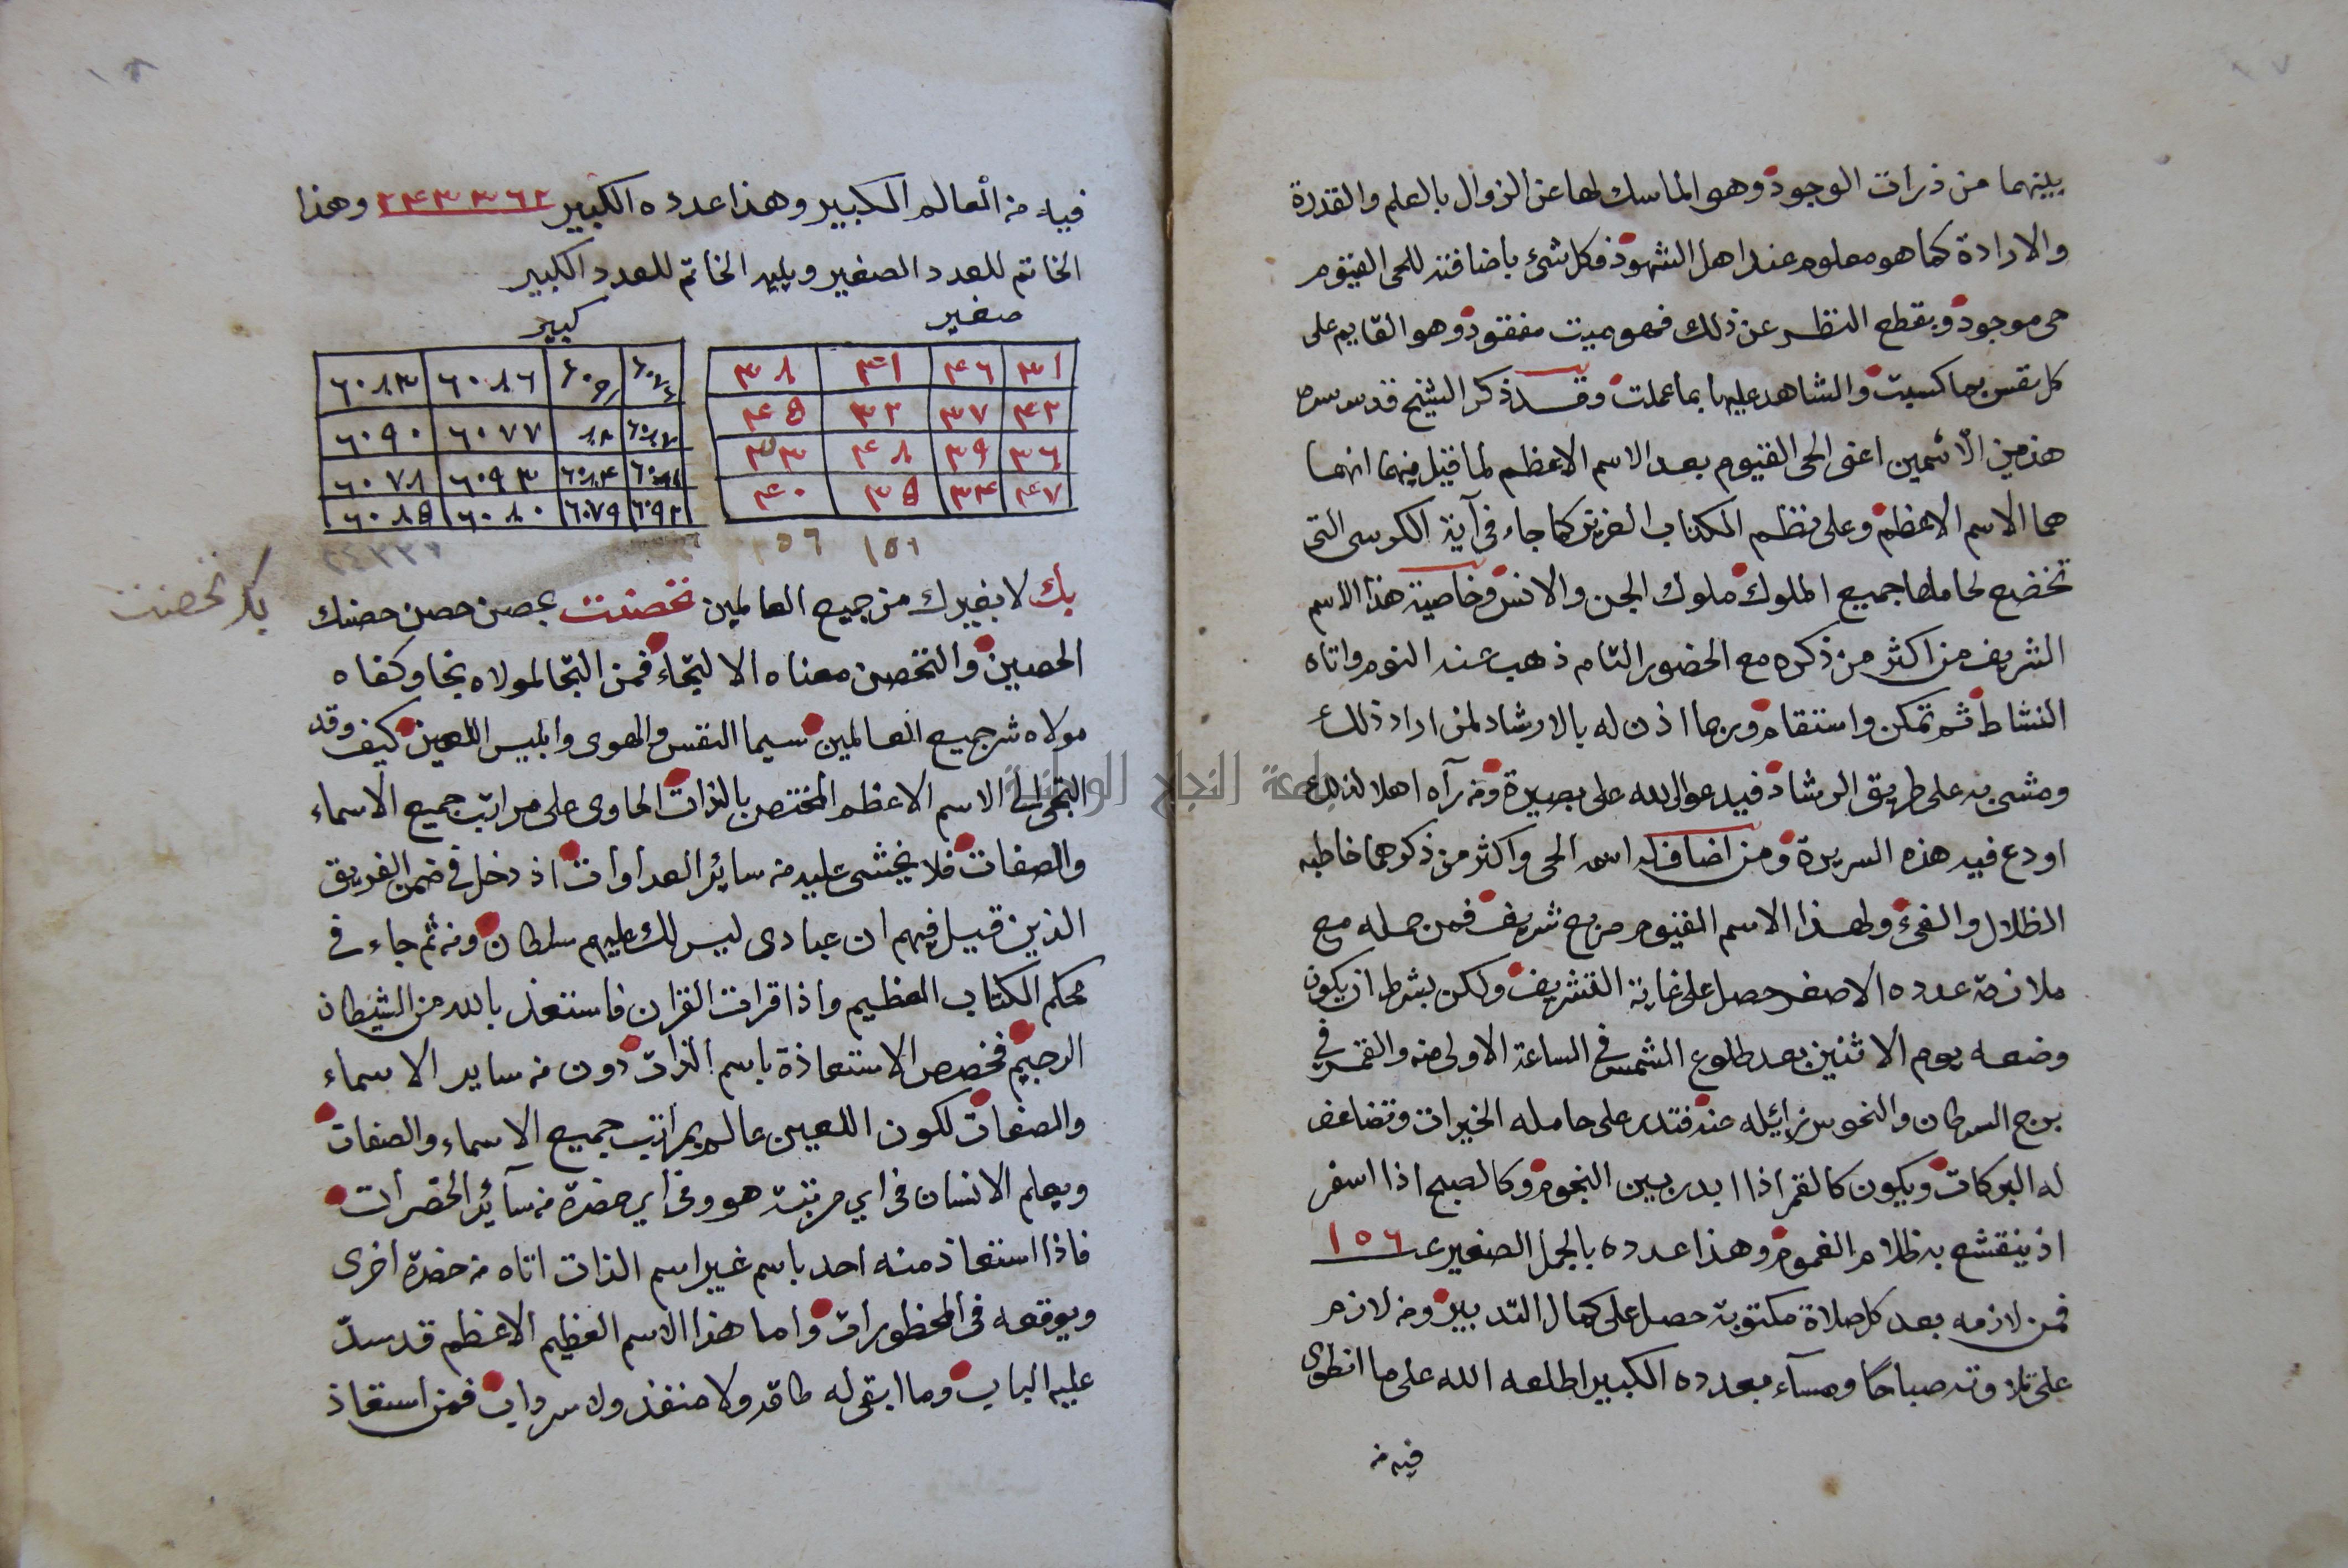 ١٧
بينهما من ذرات الوجود وهو الماسك لها عن الزوال بالعلم والقدرة
والارادة كما هو معلوم عند اهل الشهود فكل شئ باضافته للحى القيوم
حى موجود وبقطع النظر عن ذلك فهو ميت مفقود وهو القايم على
كل نفس بما كسبت والشاهد عليها بما عملت وقد ذكر الشيخ قدس سره
هذين الاسمين اعنى الحى القيوم بعد الاسم الاعظم لما قيل فيهما انهما
هما الاسم الاعظم وعلى نظم الكتاب العزيز كما جاء فى آية الكرسى التى
تخضع لحاملها جميع الملوك ملوك الجن والانس وخاصية هذا الاسم
الشريف من اكثر من ذكره مع الحضور التام ذهب عنه النوم واتاه
النشاط ثم تمكن واستقام وربما اذن له بالارشاد لمن اراد ذلك
ومشى به على طريق الرشاد فيدعو الى الله على بصيرة ومن رآه اهلا لذلك
اودع فيه هذه السريرة ومن اضاف له اسمه الحى واكثر من ذكرهما خاطبه
الظلال والفئ ولهذا الاسم القيوم مربع شريف فمن حمله مع
ملازمة عدده الاصغر حصل على غاية التشريف ولكن بشرط ان يكون
وضعه يوم الاثنين بعد طلوع الشمس فى الساعة الاولى منه والقمر فى
برج السرطان والنحوس زائيله عنه فتدر على حامله الخيرات وتضاعف
له البركات ويكون كالقمر اذا ابدر بين النجوم وكالصبح اذا اسفر
اذ ينقشع به ظلام الغموم وهذا عدده بالجمل الصغير ١٥٦
فمن لازمه بعد كل صلاة مكتوبة حصل على كمال التدبير ومن لازم
على تلاوته صباحا ومسآء بعدده الكبير اطلعه الله على ما انطوى
فيه من
١٨
فيه من العالم الكبير وهذا عدده الكبير ٢٤٣٣٦٢ وهذا
الخاتم للعدد الصغير ويليه الخاتم للعدد الكبير
صغير
٣١ ٤٦ ٤١ ٣٨
٤٢ ٣٧ ٣٢ ٤٥
٣٦ ٣٩ ٤٨ ٣٣
٤٧ ٣٤ ٣٥ ٤٠
١٥٦ ١٥٦
كبير
٦٠٨٦ ٦٠٨٣
٦٠٧٧ ٦٠٩٠
٦٠٨٤ ٦٠٩٣ ٦٠٧٨
٦٠٩٢ ٦٠٧٩ ٦٠٨٠ ٦٠٨٥
بك لا بغيرك من جميع العالمين تحصنت بحصن حصن حصنك
بك تحصنت
الحصين والتحصن معناه الالتجاء فمن التجا لمولاه نجا وكفاه
مولاه شر جميع العالمين سيما النفس والهوى وابليس اللعين كيف وقد
التجى الى الاسم الاعظم المختص بالذات الحاوى على مراتب جميع الاسماء
والصفات فلا يخشى عليه من سائر العداوات اذ دخل فى ضمن الفريق
الذين قيل فيهم ان عبادى ليس لك عليهم سلطان ومن ثم جاء فى
محكم الكتاب العظيم واذا قرات القران فاستعذ بالله من الشيطان
الرجيم فخصص الاستعاذة باسم الذات دون من ساير الاسماء
والصفات لكون اللعين عالم بمراتب جميع الاسماء والصفات
ويعلم الانسان فى اي مرتبة هو وفى اي حضرة من سآئر الحضرات
فاذا استعاذ منه احد باسم غير اسم الذات اتاه من حضرة اخرى
ويوقعه فى المحظورات واما هذا الاسم العظيم الاعظم قد سدّ
عليه الباب وما ابقى له طاقه ولا منفذ ولا سرداب فمن استعاذ
جامعة النجاح الوطنية